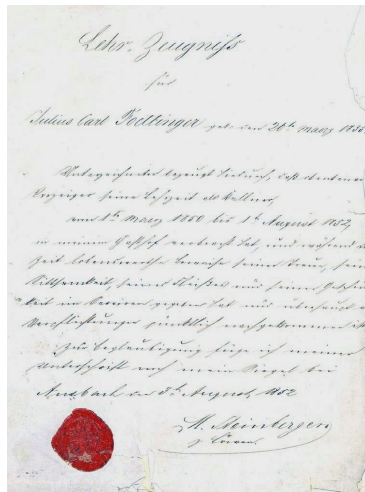 Lehr-Zeugniss
für
Julius Carl Podtinger geb. den 26t. März 183
Unterzeichneter bezeugt hiedurch, daß
seine Lehrzeit als Kellner,
vom 1t. März 1850 bis 1t. August 1852,
in meinem Gasthof hat, und während
Zeit lobenswerthe Beweise seiner Treue,
Sittsamkeit, seines Fleißes und seiner
keit im Serviren gegeben hat und überhaupt
Verpflichtungen pünktlich nachgekommen ist
Zur Beglaubigung füge ich meiner
Unterschrift auch mein Siegel bei
Ansbach den August, 1852
M. Steinberger
z. Löwen